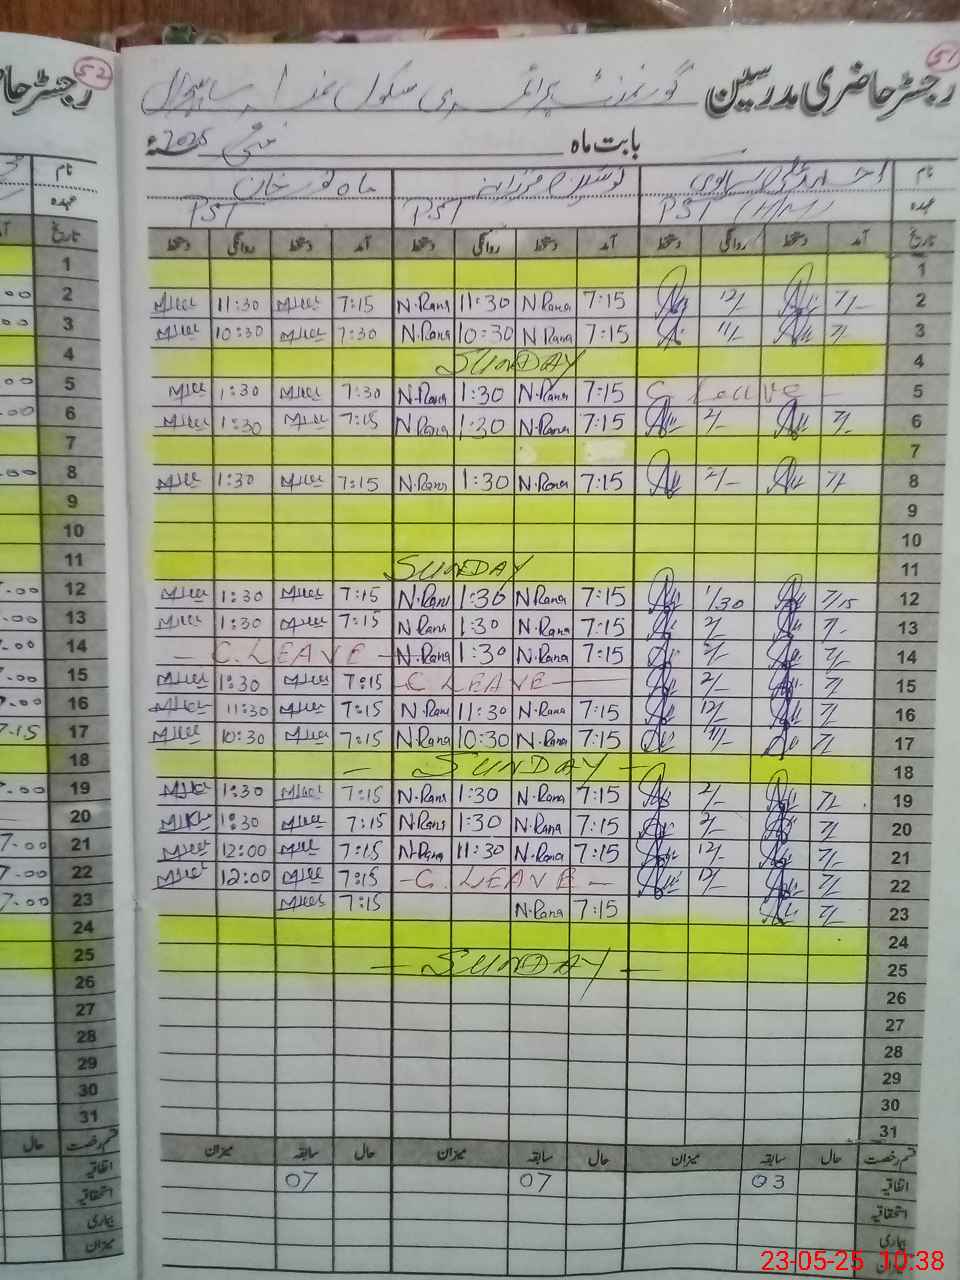 51
رجسٹر حاضری مدرسین گورنمنٹ پرائمری سکول
بابت ماہ مئی 2025
نام ماہ نور خان
عہدہ PST (HM) PST PST
تاریخ آمد دستخط روانگی دستخط آمد دستخط روانگی دستخط آمد دستخط روانگی دستخط
1
2 7/- 12/- 7:15 N.Rana 11:30 N.Rana 7:15 11:30
3 7/- 11/- 7:15 N.Rana 10:30 N.Rana 7:30 10:30
4 SUNDAY
5 C Leave 7:15 N.Rana 1:30 N.Rana 7:30 1:30
6 7/- 2/- 7:15 N.Rana 1:30 N.Rana 7:15 1:30
7
8 7/- 2/- 7:15 N.Rana 1:30 N.Rana 7:15 1:30
9
10
11 SUNDAY
12 7/15 1/30 7:15 N.Rana 1:30 N.Rana 7:15 1:30
13 7/- 2/- 7:15 N.Rana 1:30 N.Rana 7:15 1:30
14 7/- 2/- 7:15 N.Rana 1:30 N.Rana C.LEAVE
15 7/- 2/- C LEAVE 7:15 1:30
16 7/- 12/- 7:15 N.Rana 11:30 N.Rana 7:15 11:30
17 7/- 11/- 7:15 N.Rana 10:30 N.Rana 7:15 10:30
18 SUNDAY
19 7/- 2/- 7:15 N.Rana 1:30 N.Rana 7:15 1:30
20 7/- 2/- 7:15 N.Rana 1:30 N.Rana 7:15 1:30
21 7/- 12/- 7:15 N.Rana 11:30 N.Rana 7:15 12:00
22 7/- 12/- C. LEAVE 7:15 12:00
23 7/- 7:15 N.Rana 7:15
24
25 SUNDAY
26
27
28
29
30
31
قسم رخصت حال سابقہ میزان حال سابقہ میزان حال سابقہ میزان
اتفاقیہ 03 07 07
استحقاقیہ
بیماری
میزان
52
رجسٹر
نام
عہدہ
تاریخ
1
2
3
4
5
6
7
8
9
10
11
12
13
14
15
16
17 7.15
18
19
20
21 7.00
22 7.00
23 7.00
24
25
26
27
28
29
30
31
قسم رخصت حال
اتفاقیہ
استحقاقیہ
بیماری
میزان
23-05-25 10:38